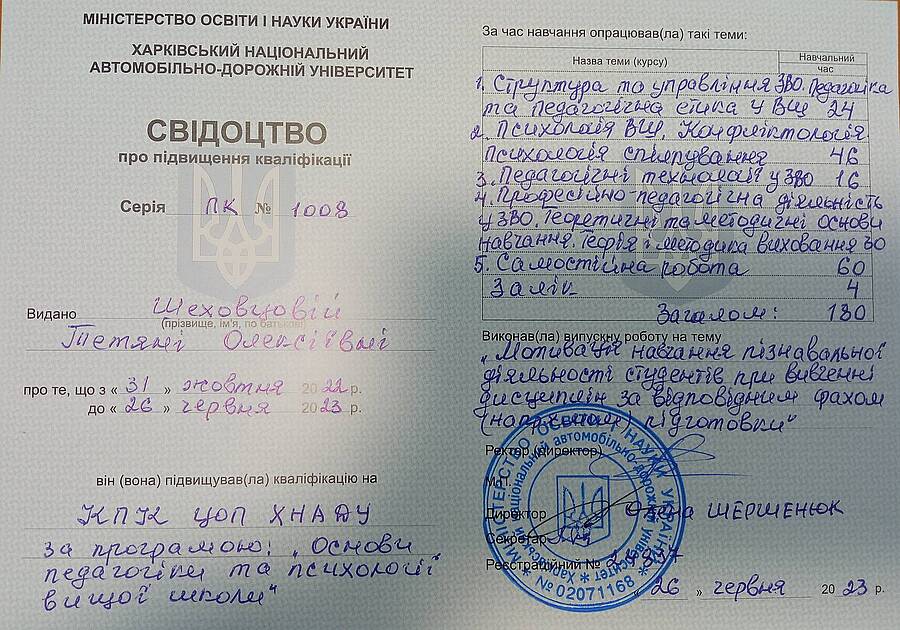 МІНІСТЕРСТВО ОСВІТИ І НАУКИ УКРАЇНИ
ХАРКІВСЬКИЙ НАЦІОНАЛЬНИЙ
АВТОМОБІЛЬНО-ДОРОЖНІЙ УНІВЕРСИТЕТ
СВІДОЦТВО
про підвищення кваліфікації
Серія ПК № 1008
Видано Шеховцовій
(прізвище, ім'я, по батькові)
Тетяні Олексіївні
про те, що з « 31 » жовтня 2022 р.
до « 26 » червня 2023 р.
він (вона) підвищував(ла) кваліфікацію на
КПК ЦОП ХНАДУ
за програмою: „Основи
педагогіки та психології
вищої школи"
За час навчання опрацював(ла) такі теми:
Назва теми (курсу) Навчальний
час
1. Структура та управління ЗВО. Педагогіка
та педагогічна етика у ВШ 24
2. Психологія ВШ. Конфліктологія
Психологія спілкування 46
3. Педагогічні технології у ЗВО 16
4. Професійно-педагогічна діяльність
у ЗВО. Теоретичні та методичні основи
навчання. Теорія і методика виховання 30
5. Самостійна робота 60
Залік 4
Загалом: 180
Виконав(ла) випускну роботу на тему
„Мотивація навчання пізнавальної
діяльності студентів при вивченні
дисциплін за відповідним фахом
(напрямом) підготовки"
Ректор (директор)
М.П.
Директор Олена ШЕРШЕНЮК
Секретар
Реєстраційний №
« 26 » червня 2023 р.
МІНІСТЕРСТВО ОСВІТИ І НАУКИ УКРАЇНИ
Харківський національний автомобільно-дорожній університет
№ 02071168